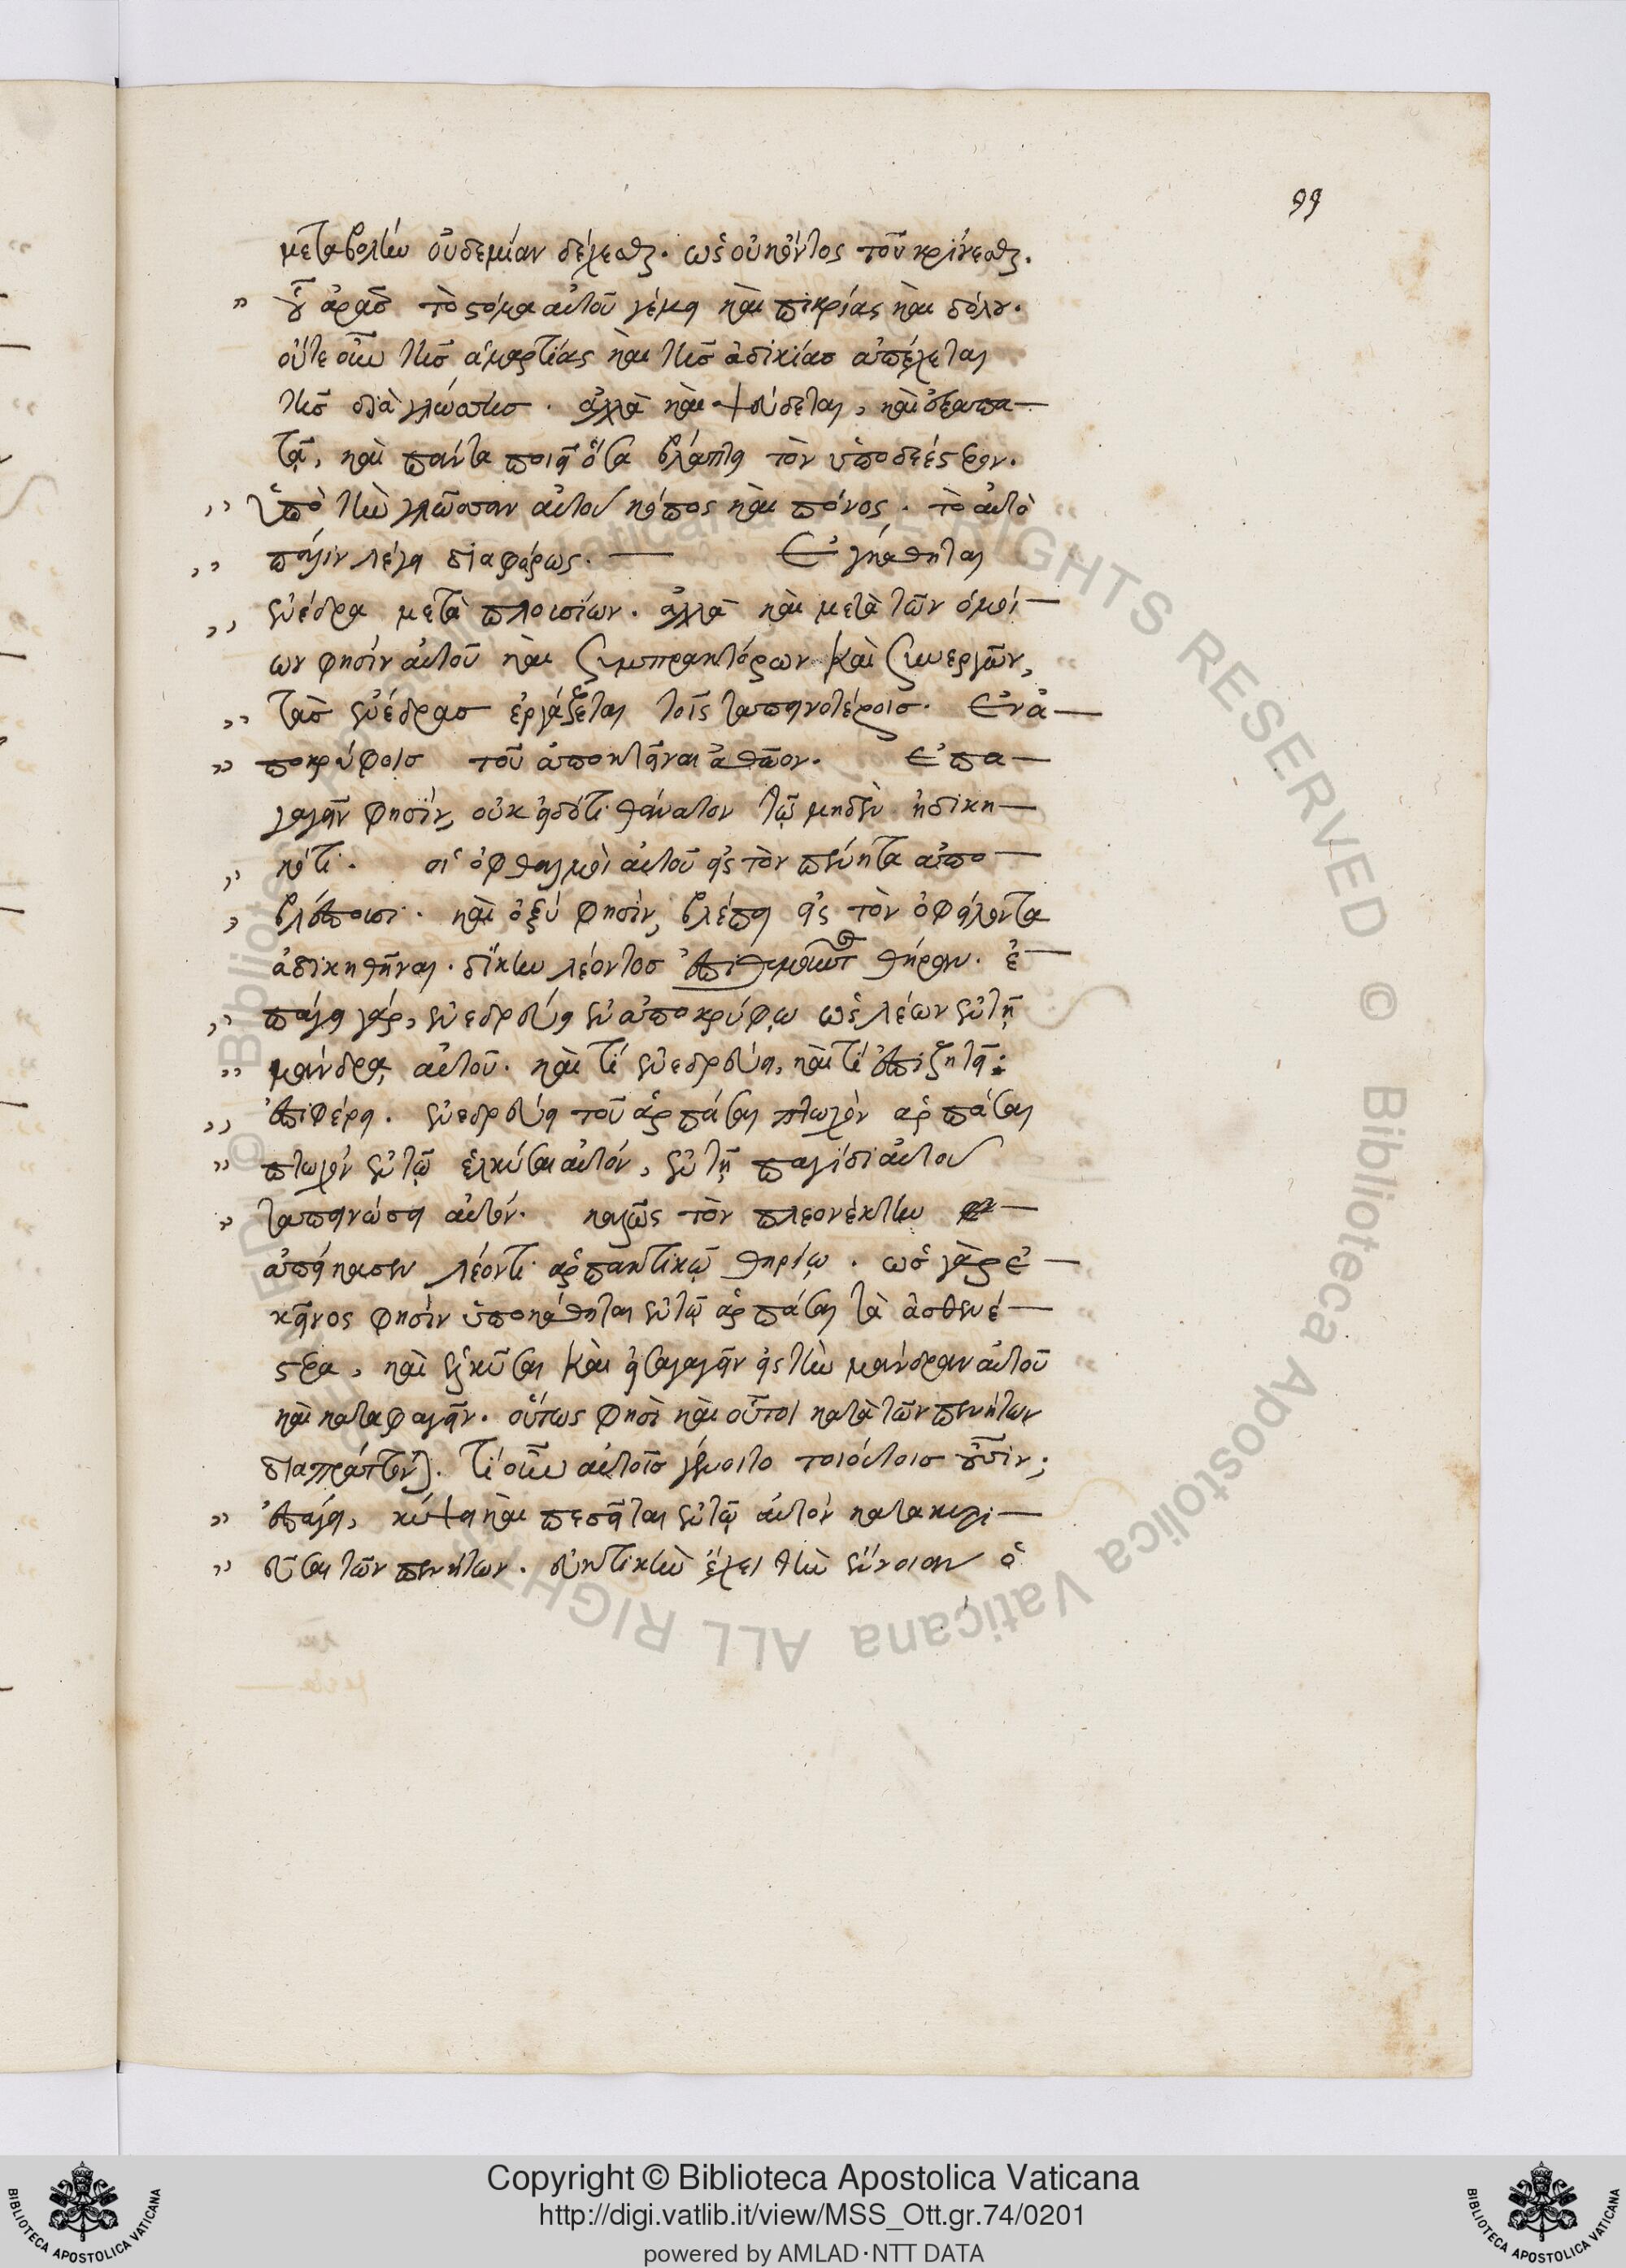 99
μεταβολὴν οὐδεμίαν δέχεσθαι. ὡς οὐκ ὄντος τοῦ κρίνεσθαι.
" οὗ ἀρᾶς τὸ στόμα αὐτοῦ γέμει καὶ πικρίας καὶ δόλου.
οὔτε οὖν τῆς ἁμαρτίας καὶ τῆς ἀδικίας ἀπέχεται
τῆς διὰ γλώσσης. ἀλλὰ καὶ ψεύδεται, καὶ ἐξαπα
τᾷ, καὶ πάντα ποιεῖ ὅσα βλάπτει τὸν ὑποδεέστερον.
" Ὑπὸ τὴν γλῶσσαν αὐτοῦ κόπος καὶ πόνος. τὸ αὐτὸ
" πάλιν λέγει διαφόρως. — Ἐγκάθηται
" ἐνέδρα μετὰ πλουσίων. ἀλλὰ καὶ μετὰ τῶν ὁμοί
ων φησὶν αὐτοῦ καὶ συμπρακτόρων καὶ συνεργῶν,
" τὰς ἐνέδρας ἐργάζεται τοῖς ταπεινοτέροις. Ἐν ἀ
" ποκρύφοις τοῦ ἀποκτεῖναι ἀθῶον. ἐπα
γαγεῖν φησὶν, οὐκ εἰδότι θάνατον τῷ μηδὲν ἠδικη
" κότι. οἱ ὀφθαλμοὶ αὐτοῦ εἰς τὸν πένητα ἀπο
" βλέπουσι. καὶ ὀξύ φησὶν, βλέπει εἰς τὸν ὀφείλοντα
ἀδικηθῆναι. δίκην λέοντος θήραν. ἐ
" πάγει γάρ, ἐνεδρεύει ἐν ἀποκρύφῳ ὡς λέων ἐν τῇ
" μάνδρᾳ αὐτοῦ. καὶ τί ἐνεδρεύει, καὶ τί ἐπιζητεῖ:
" ἐπιφέρει. ἐνεδρεύει τοῦ ἁρπάσαι πτωχόν ἁρπάσαι
" πτωχὸν ἐν τῷ ἑλκύσαι αὐτόν, ἐν τῇ παγίδι αὐτοῦ
" ταπεινώσει αὐτόν. καλῶς τὸν πλεονέκτην
ἀπείκασεν λέοντι ἁρπακτικῷ θηρίῳ. ὡς γὰρ ἐ
κεῖνος φησὶν ὑποκάθηται ἐν τῷ ἁρπάσαι τὰ ἀσθενέ
στερα, καὶ ἑλκῦσαι καὶ εἰσαγαγεῖν εἰς τὴν μάνδραν αὐτοῦ
καὶ καταφαγεῖν. οὕτως φησὶ καὶ οὗτοι κατὰ τῶν πενήτων
διαπράττονται. Τί οὖν αὐτοῖς γένοιτο τοιούτοις οὖσιν;
" ἐπάγει, κύψει καὶ πεσεῖται ἐν τῷ αὐτὸν κατακυρι
" εῦσαι τῶν πενήτων. εὐκτικὴν ἔχει τὴν ἔννοιαν ὁ
Copyright © Biblioteca Apostolica Vaticana
http://digi.vatlib.it/view/MSS_Ott.gr.74/0201
powered by AMLAD·NTT DATA